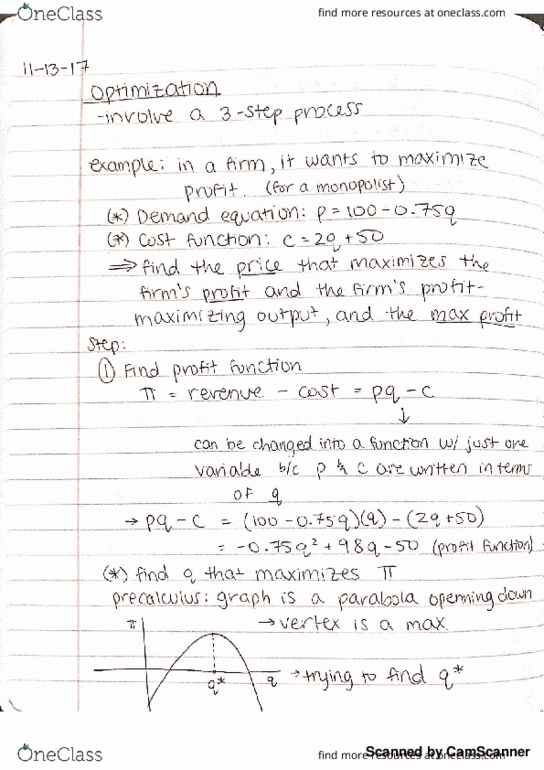 OneClass
find more resources at oneclass.com
11-13-17
optimization
-involve a 3-step process
example: in a firm, it wants to maximize
profit. (for a monopolist)
(*) Demand equation: p=100-0.75q
(*) Cost function: c=2q+50
⇒ find the price that maximizes the
firm's profit and the firm's profit-
maximizing output, and the max profit
Step:
① Find profit function
π = revenue - cost = pq-c
↓
can be changed into a function w/ just one
variable b/c p & c are written in terms
of q
→ pq-c = (100-0.75q)(q)-(2q+50)
= -0.75q²+98q-50 (profit function)
(*) find q that maximizes π
precalculus: graph is a parabola openning down
π
→ vertex is a max.
q*
q
→ trying to find q*
OneClass
find more resources at oneclass.com
Scanned by CamScanner